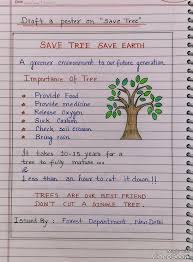 Draft a poster on "Save Tree"
SAVE TREE SAVE EARTH
A greener environment to our future generation.
Importance Of Tree
Provide Food
Provide medicine
Release Oxygen
Suck Carbon
Check soil erosion
Bring rain
It takes 10-15 years for a
tree to fully mature
Less than an hour to cut it down!!
TREES ARE OUR BEST FRIEND
DON'T CUT A SINGLE TREE.
Issued By: Forest Department, New Delhi